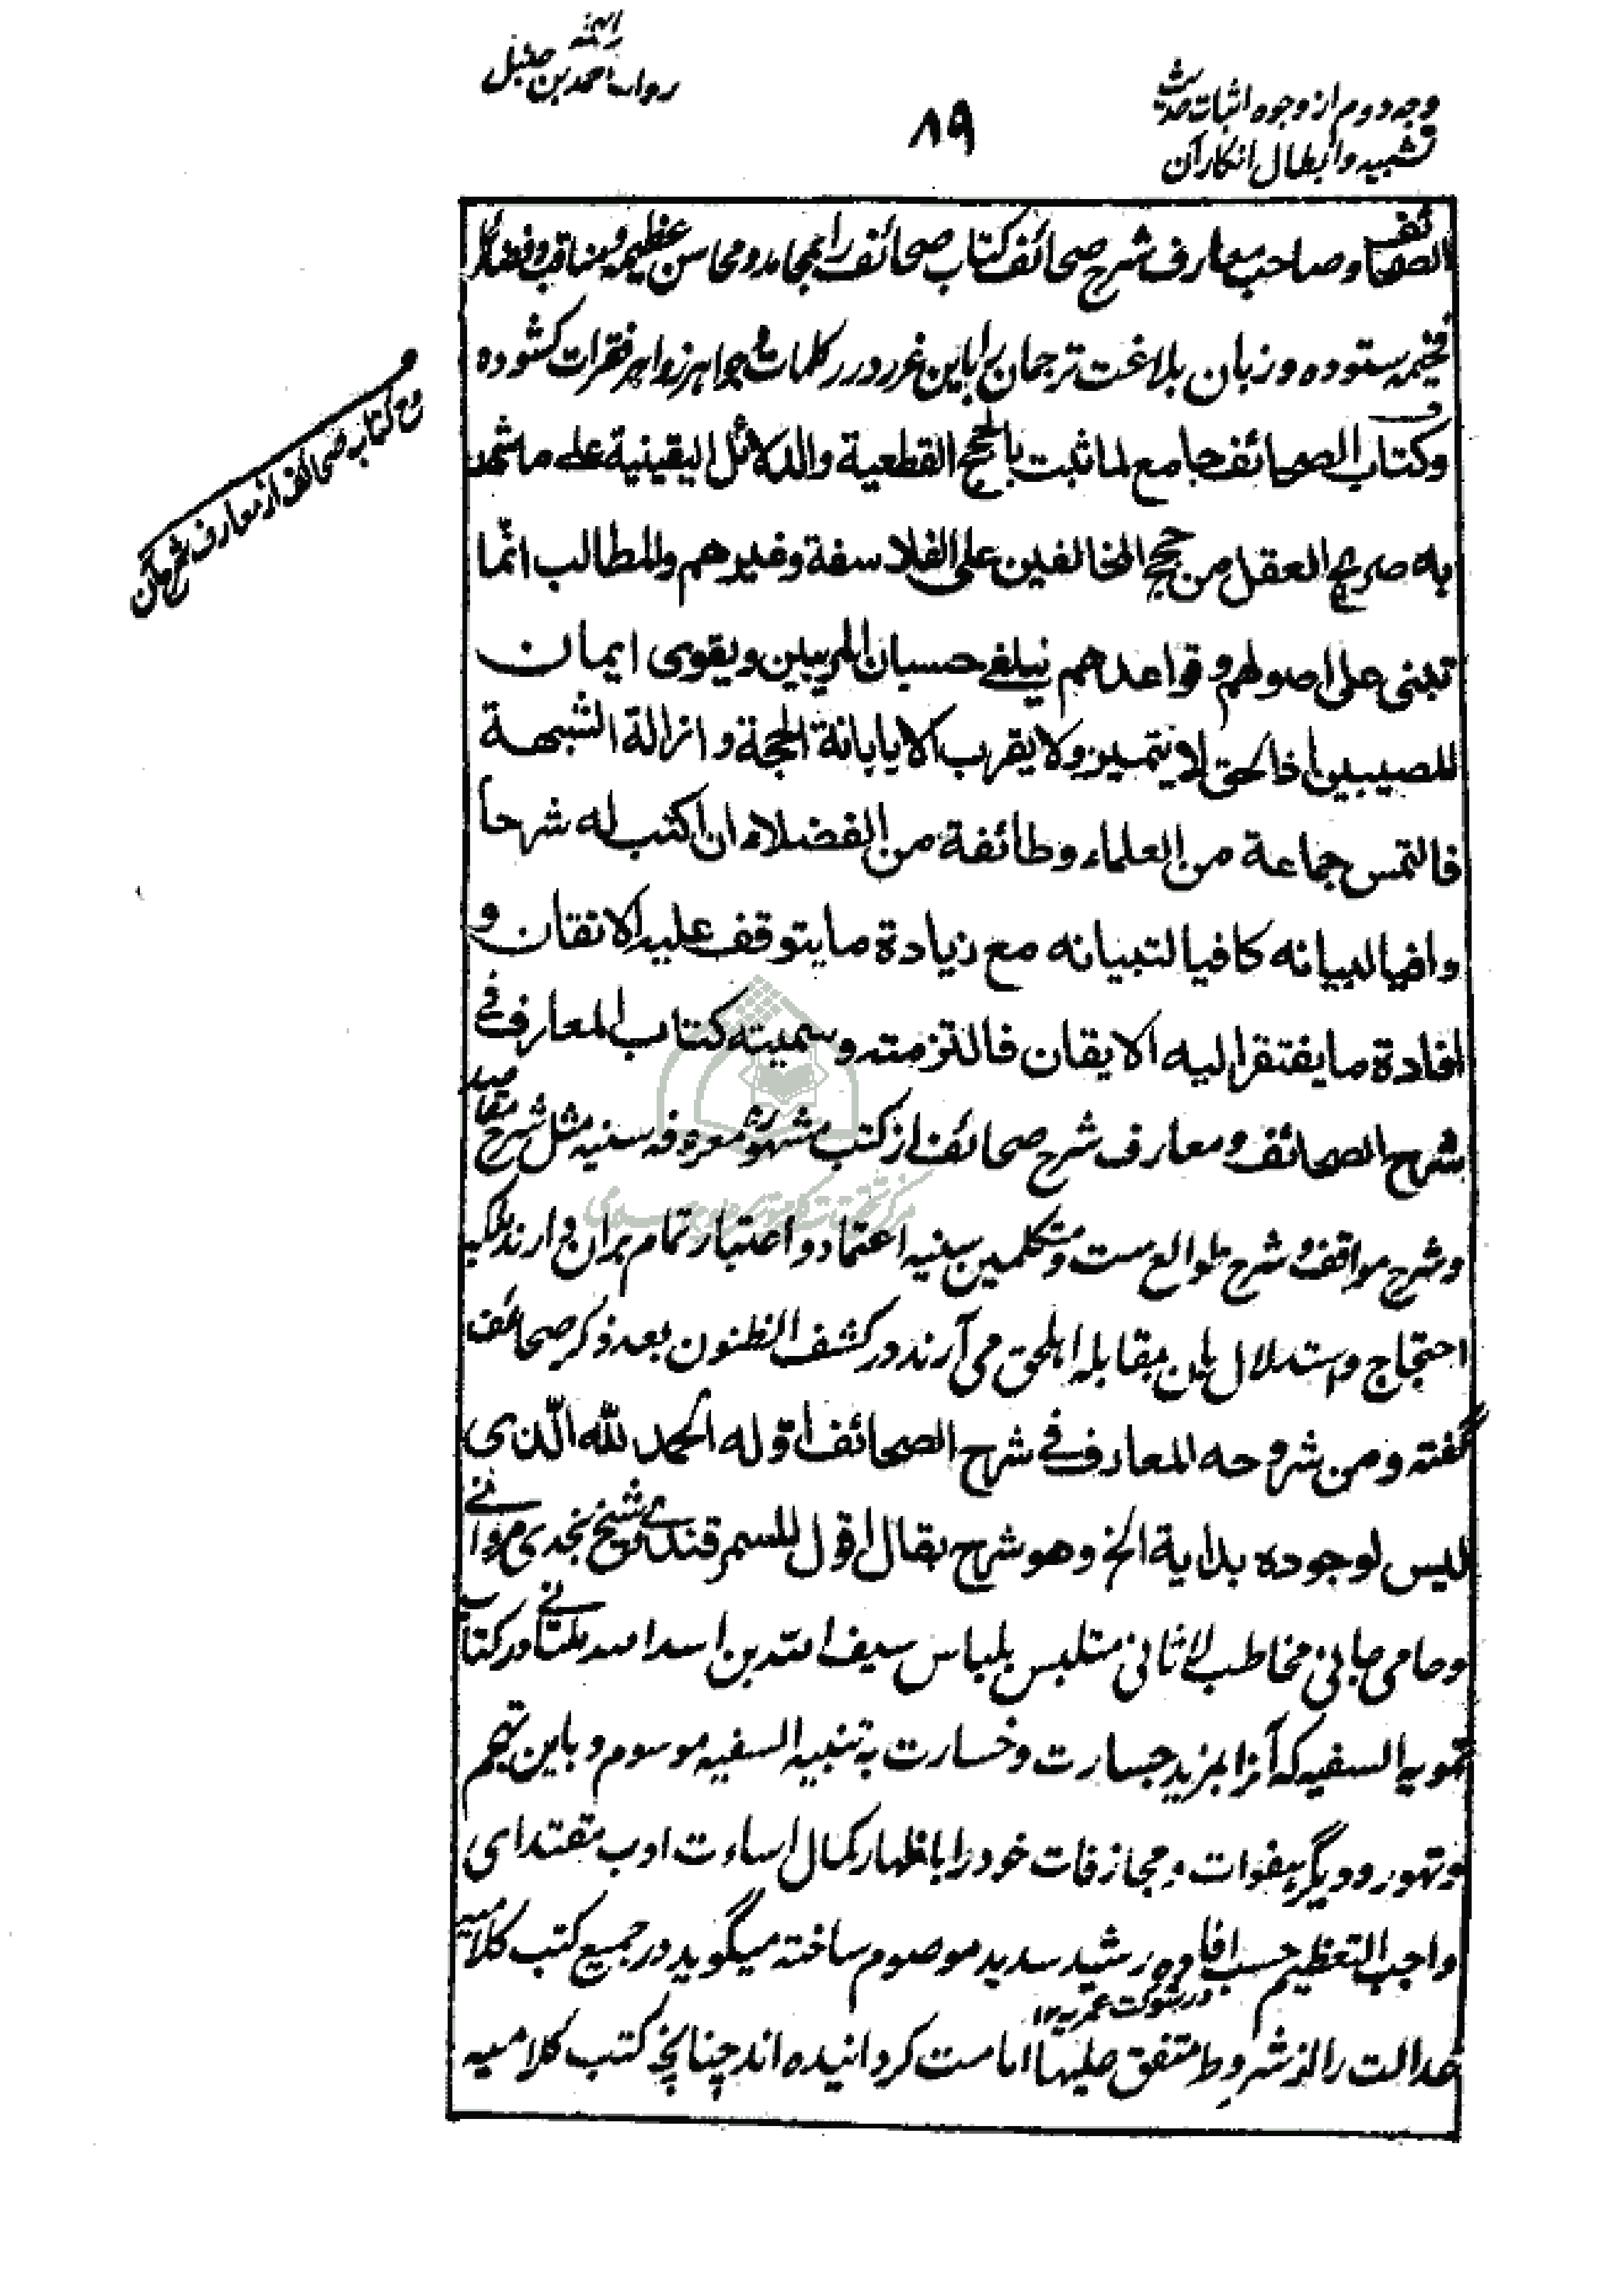 وجه دوم از وجوه اثبات حدیث
تشبیه و ابطال انکار آن
۸۹
روایت احمد بن حنبل
مدح کتاب صحائف از معارف شرح آن
الصحائف وصاحب معارف شرح صحائف کتاب صحائف را بمحامد و محاسن عظیمه و مناقب و فضائل
فخیمه ستوده و زبان بلاغت ترجمان را باین غرر درر کلمات و جواهر زواهر فقرات کشوده
وکتاب الصحائف جامع لما ثبت بالحجج القطعیة والدلائل الیقینیة علی ما شهد
به صریح العقل من حجج المخالفین علی الفلاسفة وغیرهم والمطالب انّما
تبنی علی اصولهم وقواعدهم حسبان المریبین ویقوی ایمان
المصیبین اذ الحق لا یتمیز ولا یقرب الا بابانة الحجة وازالة الشبهة
فالتمس جماعة من العلماء وطائفة من الفضلاء ان اکتب له شرحاً
وافیا لبیانه کافیا لتبیانه مع زیادة ما یتوقف علیه الاتقان و
افادة ما یفتقر الیه الایقان فالتزمته وسمیته کتاب المعارف فی
شرح الصحائف و معارف شرح صحائف از کتب مشهوره معروفه سنیه مثل شرح مقاصد
و شرح مواقف و شرح طوالع ست و متکلمین سنیه اعتماد و اعتبار تمام بران دارند بلکه
احتجاج و استدلال بان بمقابله اهل حق می آرند در کشف الظنون بعد ذکر صحائف
گفته ومن شروحه المعارف فی شرح الصحائف اوله الحمد لله الّذی
لیس لوجوده بدایة الخ وهو شرح بقال اقول للسمرقندی شیخ نجدی
و حامی جانی مخاطب لاثانی متلبس بلباس سیف الله بن اسد الله ملتانی در کتاب
تمویه السفیه که آنرا بمزید جسارت و خسارت به تنبیه السفیه موسوم و باین تهجم
و تهور و دیگر هفوات و مجازفات خود را باظهار کمال اساءت ادب مقتدای
واجب التعظیم حسب افاده رشید سدید موصوم ساخته میگوید در جمیع کتب کلامیه
در شوکت عمریه ۱۲
عدالت را از شروط متفق علیها امامت کردانیده اند چنانچه کتب کلامیه